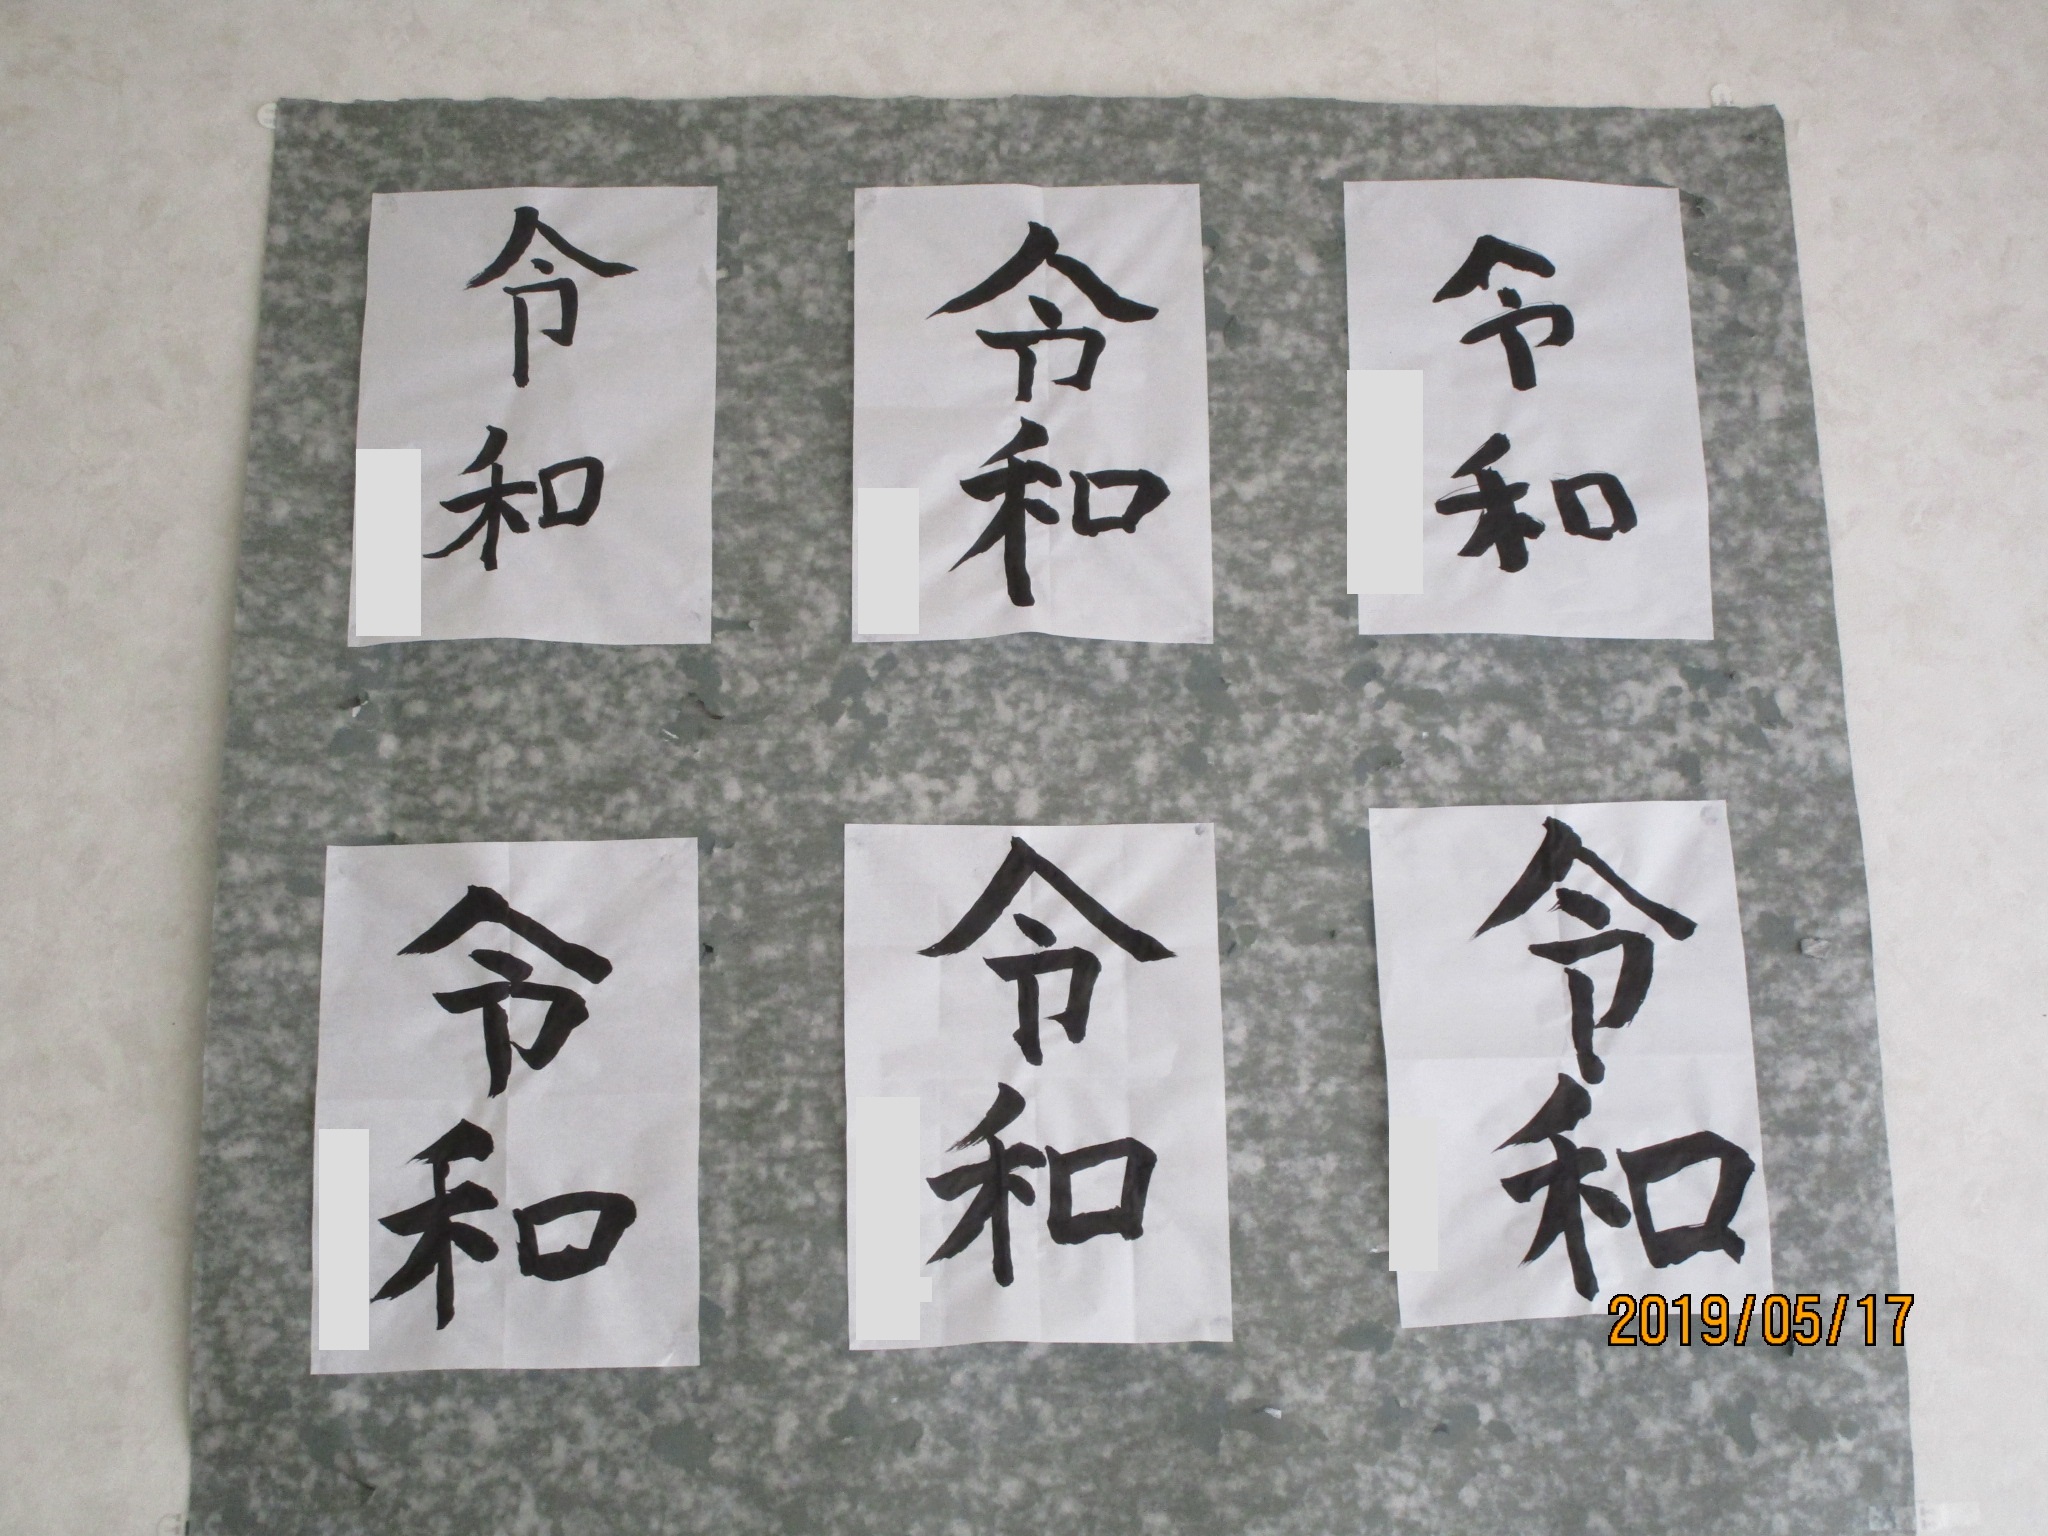 令和
令和
令和
令和
令和
令和
2019/05/17